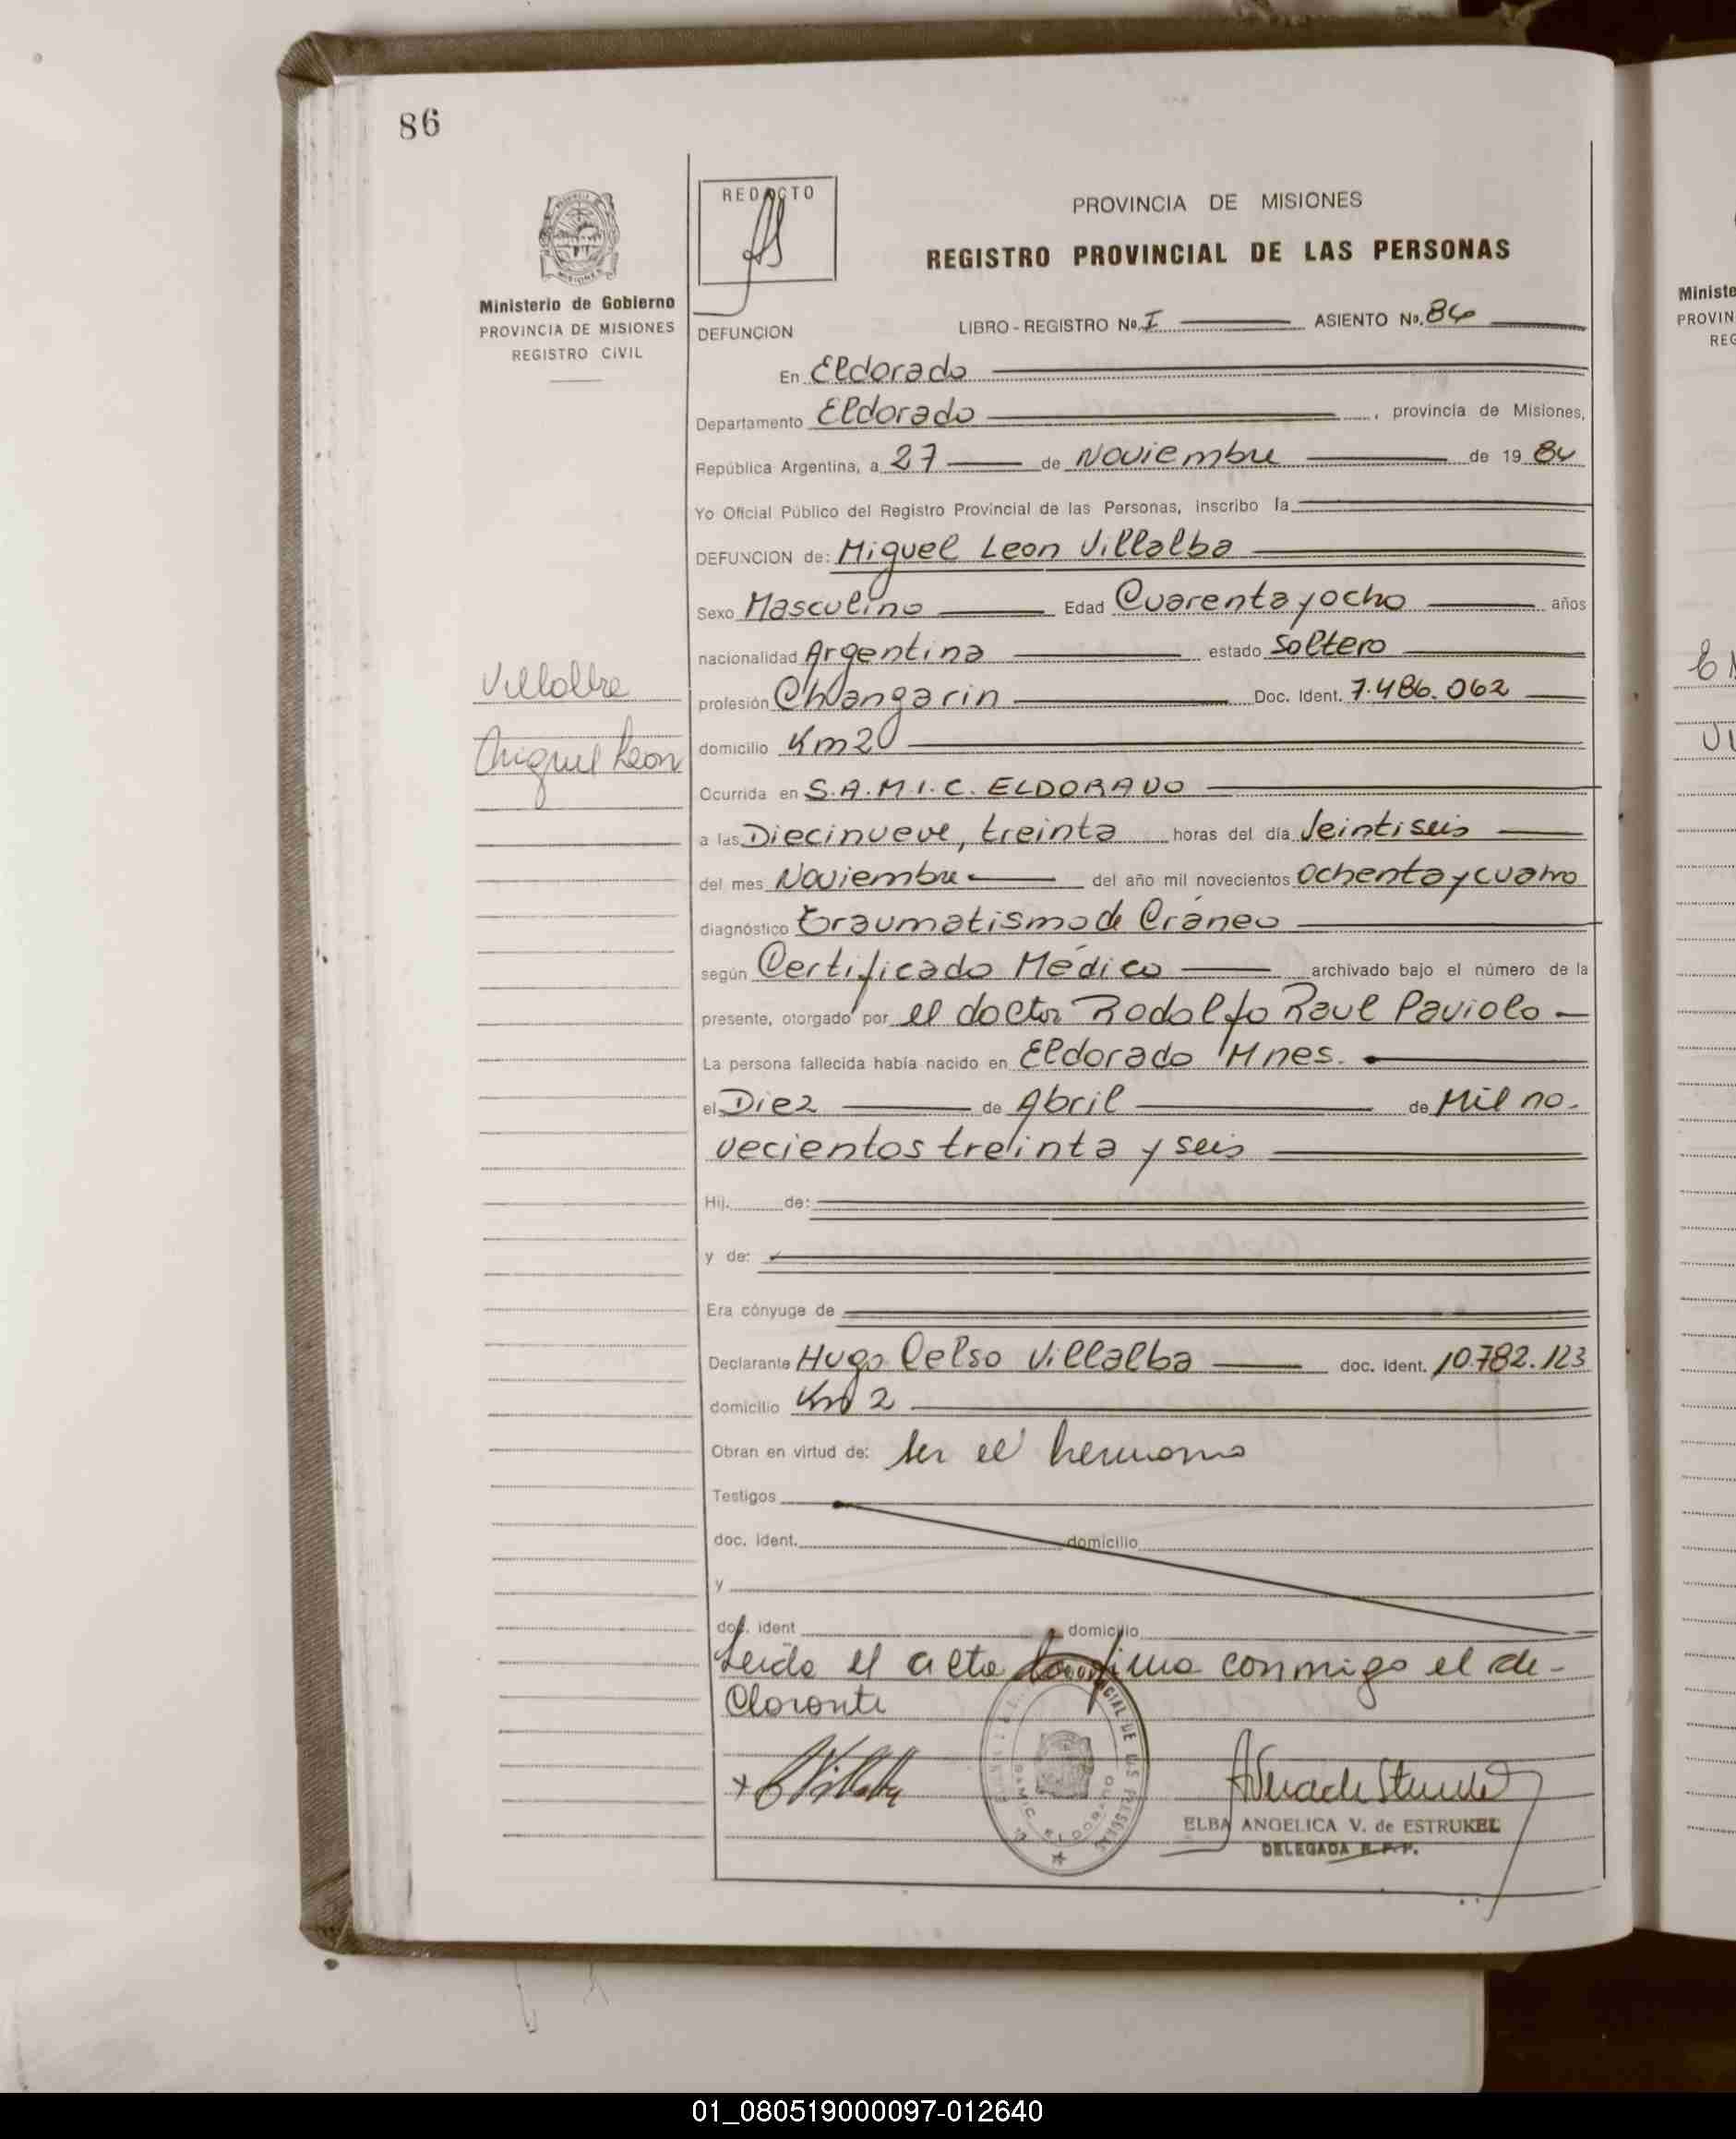 86
REDACTO
PROVINCIA DE MISIONES
REGISTRO PROVINCIAL DE LAS PERSONAS
Ministerio de Gobierno
PROVINCIA DE MISIONES
REGISTRO CIVIL
DEFUNCION LIBRO - REGISTRO No. I ASIENTO No. 86
En Eldorado
Departamento Eldorado, provincia de Misiones,
República Argentina, a 27 de Noviembre de 19 84
Yo Oficial Público del Registro Provincial de las Personas, inscribo la
DEFUNCION de: Miguel Leon Villalba
Sexo Masculino Edad Cuarenta y ocho años
nacionalidad Argentina estado Soltero
Villalba
profesión Changarin Doc. Ident. 7.486.062
Miguel Leon
domicilio Km 2
Ocurrida en S.A.M.I.C. ELDORADO
a las Diecinueve, treinta horas del día Veintiseis
del mes Noviembre del año mil novecientos Ochenta y cuatro
diagnóstico traumatismo de Cráneo
según Certificado Médico archivado bajo el número de la
presente, otorgado por el doctor Rodolfo Raul Paviolo
La persona fallecida había nacido en Eldorado Mnes.
el Diez de Abril de Mil no-
vecientos treinta y seis
Hij. de:
y de:
Era cónyuge de
Declarante Hugo Celso Villalba doc. Ident. 10.782.123
domicilio Km 2
Obran en virtud de: ser el hermano
Testigos
doc. ident. domicilio
y
doc. ident domicilio
Leida el acta la firma conmigo el de-
clarante
Villalba
ELBA ANGELICA V. de ESTRUKEL
DELEGADA R.P.P.
Ministe
PROVIN
REG
01_080519000097-012640